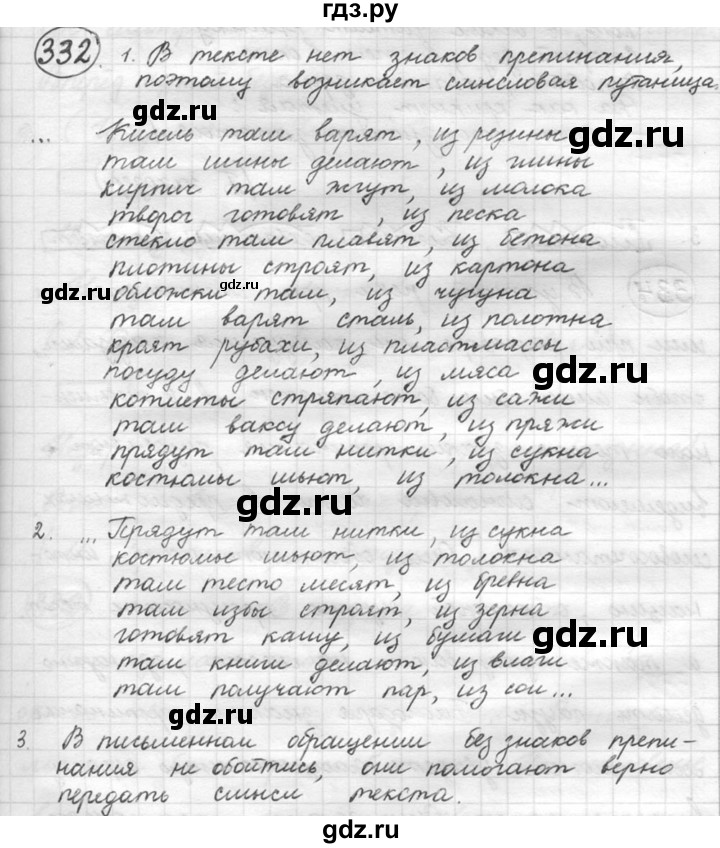 гдз.ру
332. 1. В тексте нет знаков препинания,
поэтому возникает смысловая путаница.
... Кисель там варят, из резины
там шины делают, из глины
кирпич там жгут, из молока
творог готовят, из песка
стекло там плавят, из бетона
плотины строят, из картона
gdz.ru gdz.ru
обложки там, из чугуна
там варят сталь, из полотна
кроят рубахи, из пластмассы
посуду делают, из мяса
gdz.ru
котлеты стряпают, из сажи
там ваксу делают, из пряжи
прядут там нитки, из сукна
костюмы шьют, из толокна...
gdz.ru
2. ... Прядут там нитки, из сукна
костюмы шьют, из толокна
там тесто месят, из бревна
там избы строят, из зерна
готовят кашу, из бумаги
gdz.ru
там книги делают, из влаги
там получают пар, из сои...
gdz.ru
3. В письменном обращении без знаков препи-
нания не обойтись, они помогают верно
передать смысл текста.
gdz.ru
гдз.ру